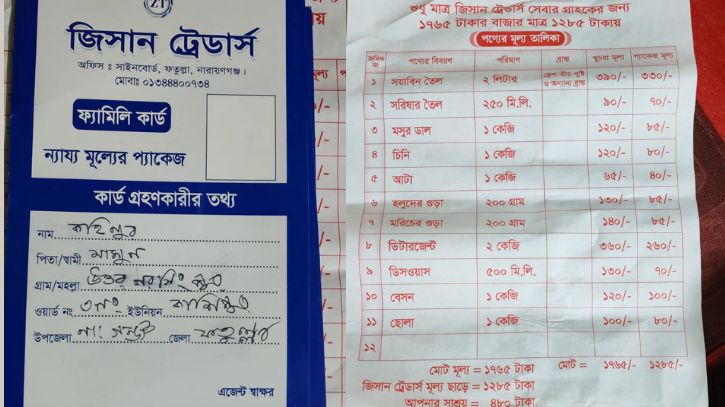 ZT
জিসান ট্রেডার্স
অফিস ঃ সাইনবোর্ড, ফতুল্লা, নারায়ণগঞ্জ।
মোবাঃ ০১৩৪৪৪০০৭৩৪
ফ্যামিলি কার্ড
ন্যায্য মূল্যের প্যাকেজ
কার্ড গ্রহণকারীর তথ্য
নাম
পিতা/স্বামী মামুন
গ্রাম/মহল্লা উত্তর নরসিংপুর
ওয়ার্ড নং ৩নং ইউনিয়ন কাশিপুর
উপজেলা না: সদর জেলা
এজেন্ট স্বাক্ষর
শুধু মাত্র জিসান ট্রেডার্স সেবার গ্রাহকের জন্য
১৭৬৫ টাকার বাজার মাত্র ১২৮৫ টাকায়
পণ্যের মূল্য তালিকা
ক্রমিক নং পণ্যের বিবরণ পরিমাণ ব্রান্ড খুচরা মূল্য প্যাকেজ মূল্য
১ সয়াবিন তৈল ২ লিটার ফ্রেশ-তীর-পুষ্টি ও অন্যান্য ব্রান্ড ৩৯০/- ৩৩০/-
২ সরিষার তৈল ২৫০ মি.লি. ৯০/- ৭০/-
৩ মসুর ডাল ১ কেজি ১২০/- ৮৫/-
৪ চিনি ১ কেজি ১২০/- ৮০/-
৫ আটা ১ কেজি ৬৫/- ৪০/-
৬ হলুদের গুড়া ২০০ গ্রাম ১৩০/- ৮৫/-
৭ মরিচের গুড়া ২০০ গ্রাম ১৪০/- ৮৫/-
৮ ডিটারজেন্ট ২ কেজি ৩৬০/- ২৬০/-
৯ ডিসওয়াস ৫০০ মি.লি. ১৩০/- ৭০/-
১০ বেসন ১ কেজি ১২০/- ১০০/-
১১ ছোলা ১ কেজি ১০০/- ৮০/-
১২
মোট মূল্য = ১৭৬৫ টাকা মোট = ১৭৬৫/- ১২৮৫/-
জিসান ট্রেডার্স মূল্য ছাড়ে = ১২৮৫ টাকা
আপনার সাশ্রয় = ৪৮০ টাকা